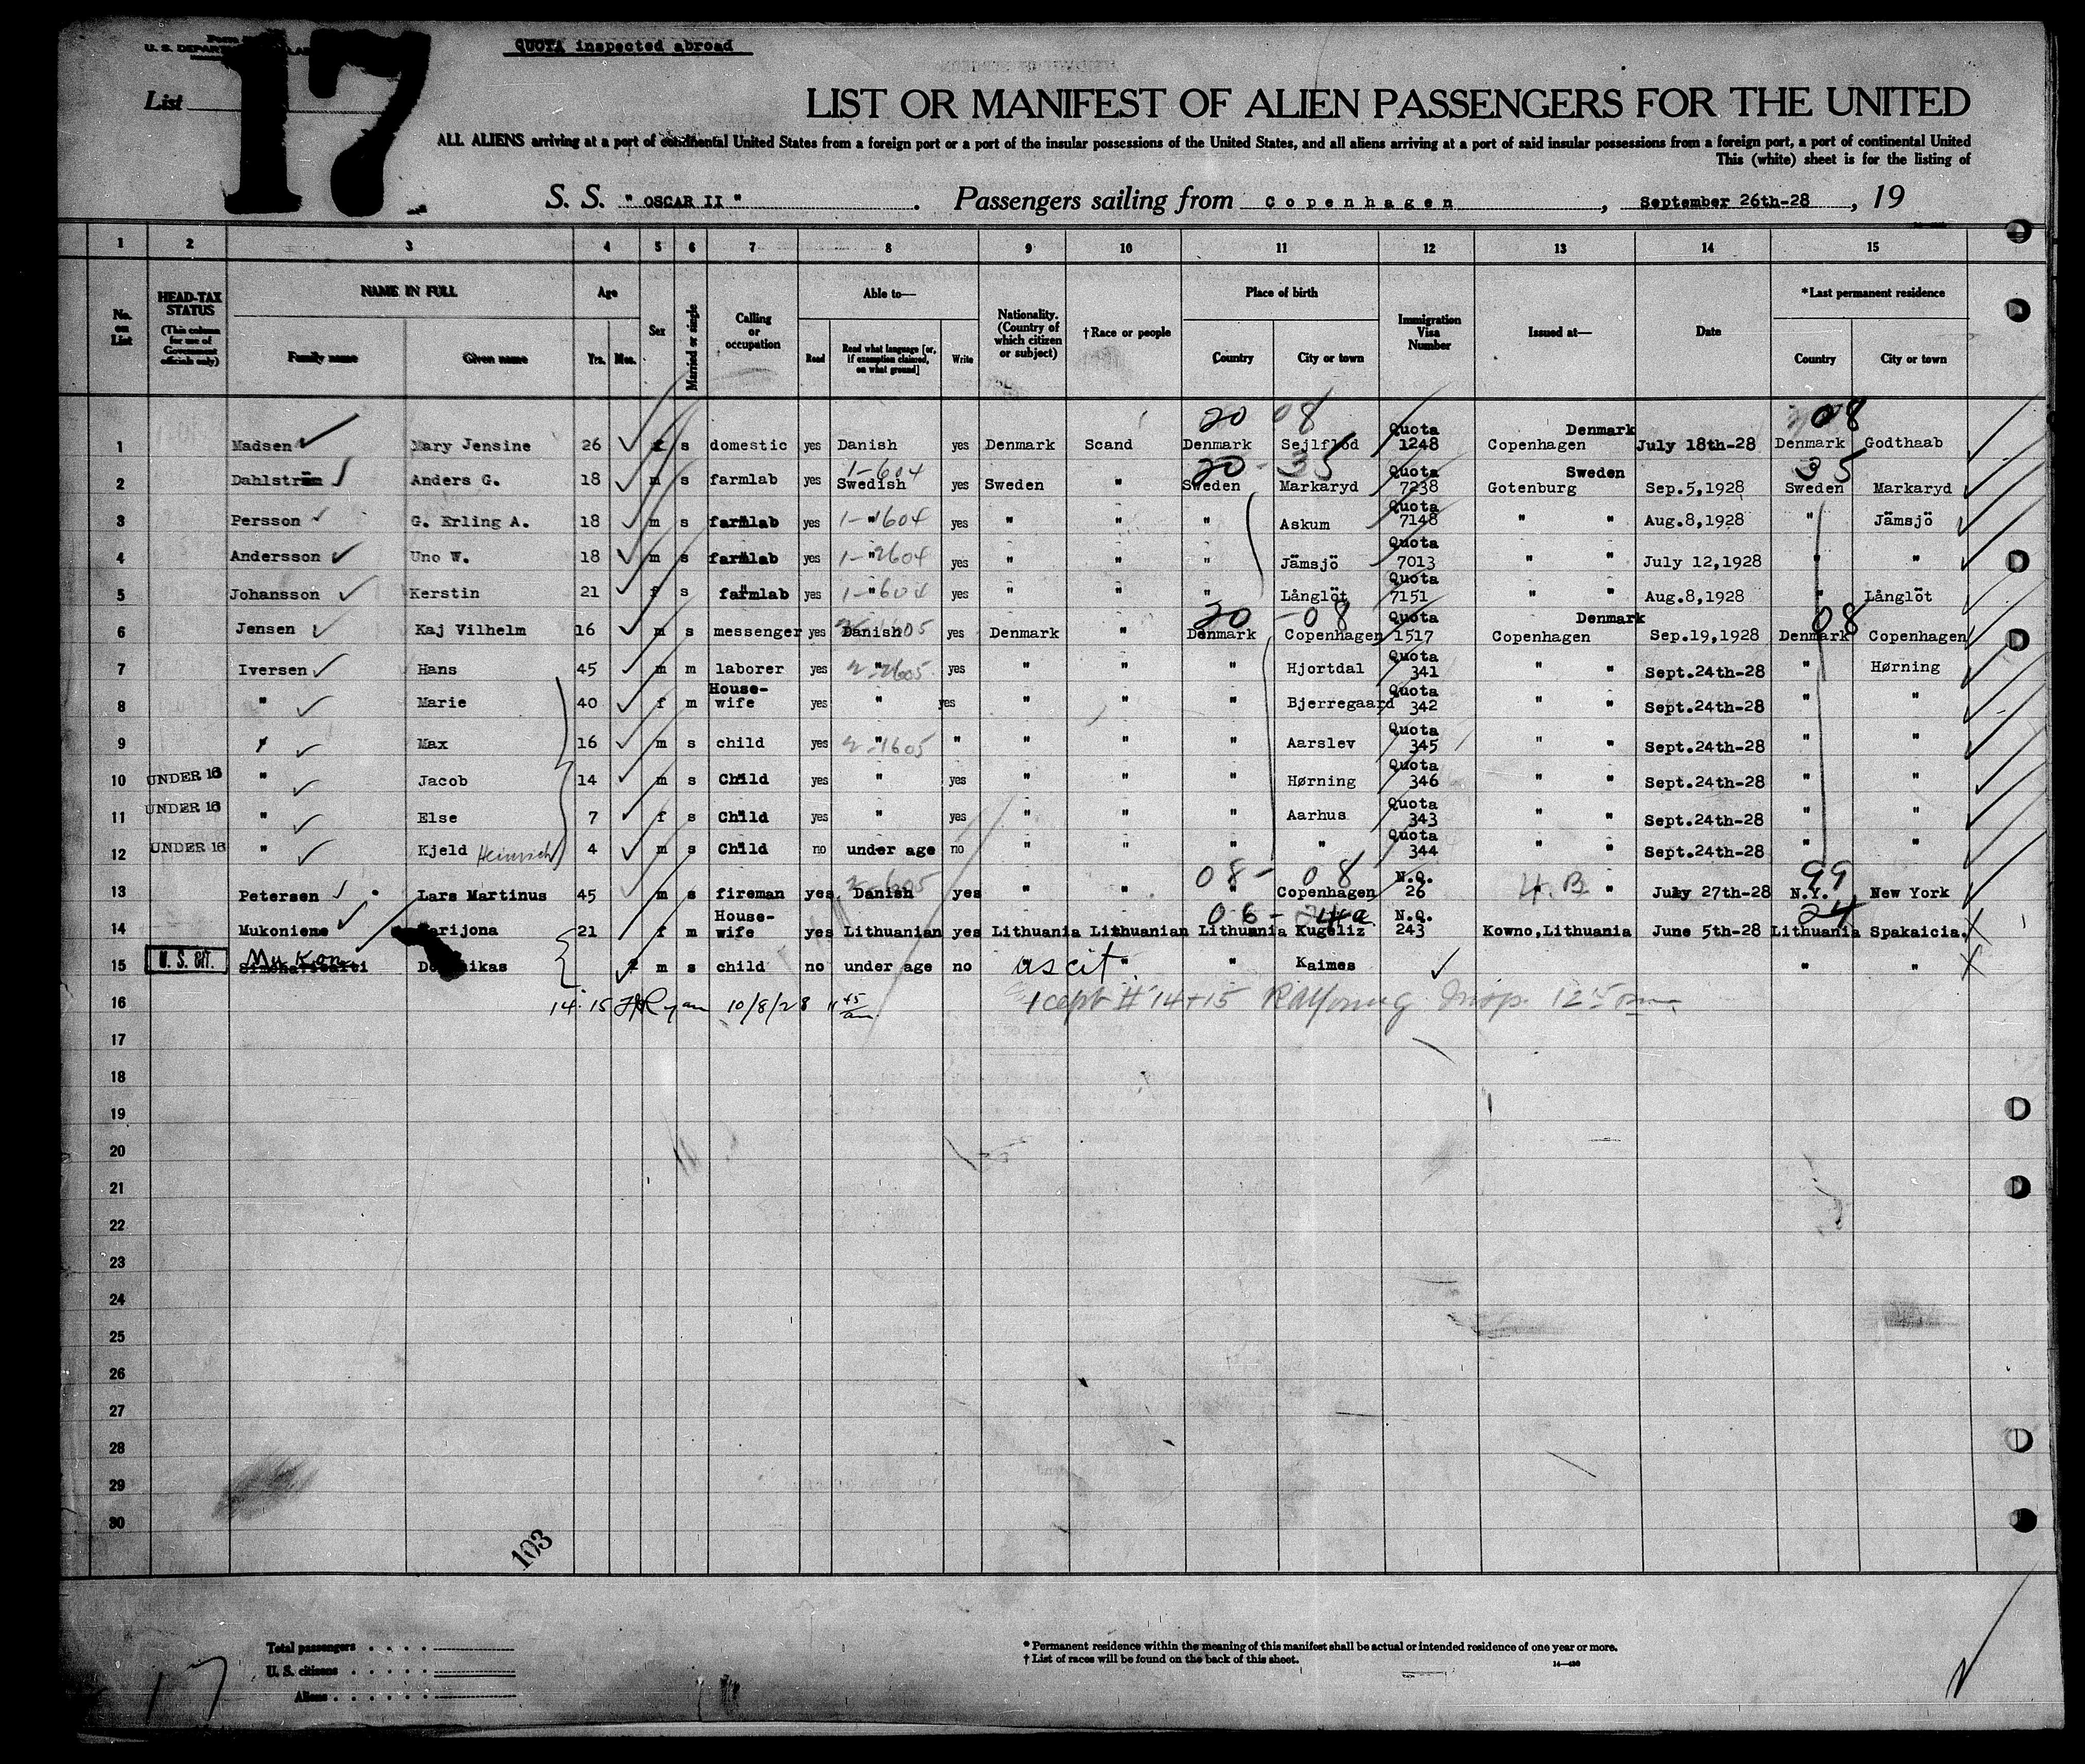 QUOTA inspected abroad
17
List
LIST OR MANIFEST OF ALIEN PASSENGERS FOR THE UNITED
ALL ALIENS arriving at a port of continental United States from a foreign port or a port of the insular possessions of the United States, and all aliens arriving at a port of said insular possessions from a foreign port, a port of continental United
This (white) sheet is for the listing of
S. S. " OSCAR II " . Passengers sailing from Copenhagen , September 26th-28 , 19
1 2 3 4 5 6 7 8 9 10 11 12 13 14 15
No. on List HEAD-TAX STATUS (This column for use of Government officials only) NAME IN FULL Family name Given name Age Yrs. Mos. Sex Married or single Calling or occupation Able to— Read Read what language [or, if exemption claimed, on what ground] Write Nationality. (Country of which citizen or subject) †Race or people Place of birth Country City or town Immigration Visa Number Issued at— Date *Last permanent residence Country City or town
20 08 08
1 Madsen Mary Jensine 26 f s domestic yes Danish yes Denmark Scand Denmark Sejlflod Quota 1248 Copenhagen Denmark July 18th-28 Denmark Godthaab
1-604 20-35 35
2 Dahlström Anders G. 18 m s farmlab yes Swedish yes Sweden " Sweden Markaryd Quota 7238 Gotenburg Sweden Sep.5,1928 Sweden Markaryd
3 Persson G. Erling A. 18 m s farmlab yes " 1-1604 yes " " " Askum Quota 7148 " " Aug.8,1928 " Jämsjö
4 Andersson Uno W. 18 m s farmlab yes " 1-2604 yes " " " Jämsjö Quota 7013 " " July 12,1928 " "
5 Johansson Kerstin 21 f s farmlab yes " 1-604 yes " " " Långlöt Quota 7151 " " Aug.8,1928 " Långlöt
20-08 08
6 Jensen Kaj Vilhelm 16 m s messenger yes Danish yes Denmark " Denmark Copenhagen Quota 1517 Copenhagen Denmark Sep.19,1928 Denmark Copenhagen
7 Iversen Hans 45 m m laborer yes " 2-2605 yes " " " Hjortdal Quota 341 " " Sept.24th-28 " Hørning
8 " Marie 40 f m House-wife yes " yes " " " Bjerregaard Quota 342 " " Sept.24th-28 " "
9 " Max 16 m s child yes " 2-1605 " " " " Aarslev Quota 345 " " Sept.24th-28 " "
10 UNDER 16 " Jacob 14 m s Child yes " yes " " " Hørning Quota 346 " " Sept.24th-28 " "
11 UNDER 16 " Else 7 f s Child yes " yes " " " Aarhus Quota 343 " " Sept.24th-28 " "
12 UNDER 16 " Kjeld Heinrich 4 m s Child no under age no " " " " Quota 344 " " Sept.24th-28 " "
08- 08 99
13 Petersen Lars Martinus 45 m s fireman yes Danish yes " " " Copenhagen N.Q. 26 " " July 27th-28 N.Y. New York
06- 24
14 Mukoniene Marijona 21 f m House-wife yes Lithuanian yes Lithuania Lithuanian Lithuania Kugeliz N.Q. 243 Kowno,Lithuania June 5th-28 Lithuania Spakaicia.
15 U. S. CIT. Mukon m s child no under age no as cit. " " Kaimes " "
16 14-15 Ryan 10/8/28 11 45 am #14+15 Insp. 12
17
18
19
20
21
22
23
24
25
26
27
28
29
30
103
Total passengers
U. S. citizens
Aliens
* Permanent residence within the meaning of this manifest shall be actual or intended residence of one year or more.
† List of races will be found on the back of this sheet.
17